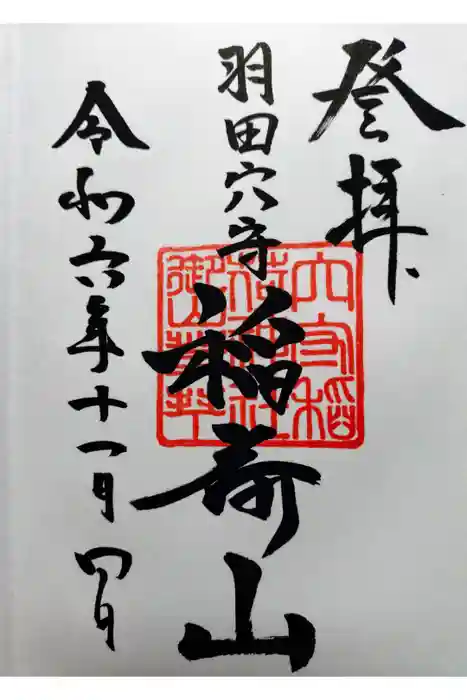 登拝
羽田穴守稲荷山
令和六年十一月四日
穴守稲
荷神社
御山